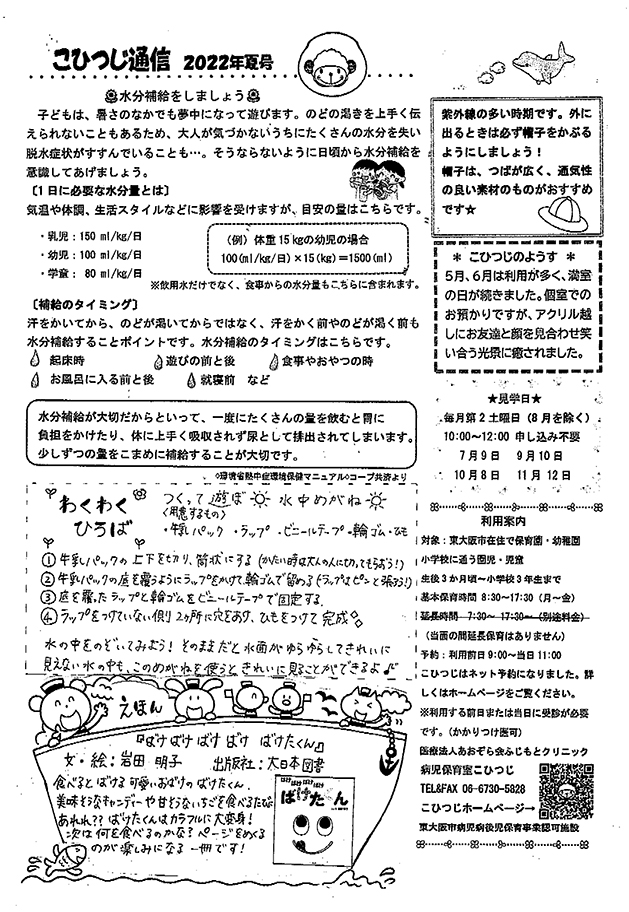 こひつじ通信 2022年夏号
水分補給をしましょう
子どもは、暑さのなかでも夢中になって遊びます。のどの渇きを上手く伝
えられないこともあるため、大人が気づかないうちにたくさんの水分を失い
脱水症状がすすんでいることも…。そうならないように日頃から水分補給を
意識してあげましょう。
〔1日に必要な水分量とは〕
気温や体調、生活スタイルなどに影響を受けますが、目安の量はこちらです。
・乳児：150 ml/kg/日
・幼児：100 ml/kg/日
・学童： 80 ml/kg/日
（例）体重15kgの幼児の場合
100(ml/kg/日)×15(kg)＝1500(ml)
※飲用水だけでなく、食事からの水分量もこちらに含まれます。
〔補給のタイミング〕
汗をかいてから、のどが渇いてからではなく、汗をかく前やのどが渇く前も
水分補給することポイントです。水分補給のタイミングはこちらです。
起床時 遊びの前と後 食事やおやつの時
お風呂に入る前と後 就寝前 など
水分補給が大切だからといって、一度にたくさんの量を飲むと胃に
負担をかけたり、体に上手く吸収されず尿として排出されてしまいます。
少しずつの量をこまめに補給することが大切です。
◇環境省熱中症環境保健マニュアル◇コープ共済より
わくわくひろば
つくって遊ぼ 水中めがね
〈用意するもの〉
・牛乳パック ・ラップ ・ビニールテープ ・輪ゴム ・ひも
① 牛乳パックの上下を切り、筒状にする（かたい時は大人の人に切ってもらおう！）
② 牛乳パックの底を覆うようにラップをかけて、輪ゴムで留める（ラップはピンと張ろう！）
③ 底を覆ったラップと輪ゴムをビニールテープで固定する
④ ラップをつけていない側 2ヶ所に穴をあけ、ひもをつけて完成
水の中をのぞいてみよう！そのままだと水面がゆらゆらしてきれいに
見えない水の中も、このめがねを使うときれいに見ることができるよ♪
えほん
『ばけばけばけばけ ばけたくん』
文・絵：岩田 明子 出版社：大日本図書
食べるとばける可愛いおばけのばけたくん。
美味そうなキャンデーや甘そうないちごを食べるたびに
あれれ？？ばけたくんはカラフルに大変身！
次は何を食べるのかな？ページをめくる
のが楽しみになる一冊です！
ばけばけばけばけ
ばけたくん
紫外線の多い時期です。外に
出るときは必ず帽子をかぶる
ようにしましょう！
帽子は、つばが広く、通気性
の良い素材のものがおすすめ
です☆
＊ こひつじのようす ＊
5月、6月は利用が多く、満室
の日が続きました。個室での
お預かりですが、アクリル越
しにお友達と顔を見合わせ笑
い合う光景に癒されました。
★見学日★
毎月第2土曜日（8月を除く）
10:00～12:00 申し込み不要
7月9日 9月10日
10月8日 11月12日
利用案内
対象：東大阪市在住で保育園・幼稚園
小学校に通う園児・児童
生後3か月頃～小学校3年生まで
基本保育時間 8:30～17:30（月～金）
延長時間 7:30～ 17:30～（別途料金）
（当面の間延長保育はありません）
予約：利用前日9:00～当日11:00
こひつじはネット予約になりました。詳
しくはホームページをご覧ください。
※利用する前日または当日に受診が必要
です。（かかりつけ医可）
医療法人あおぞら会ふじもとクリニック
病児保育室こひつじ
TEL&FAX 06-6730-5828
こひつじホームページ→
東大阪市病児病後児保育事業認可施設